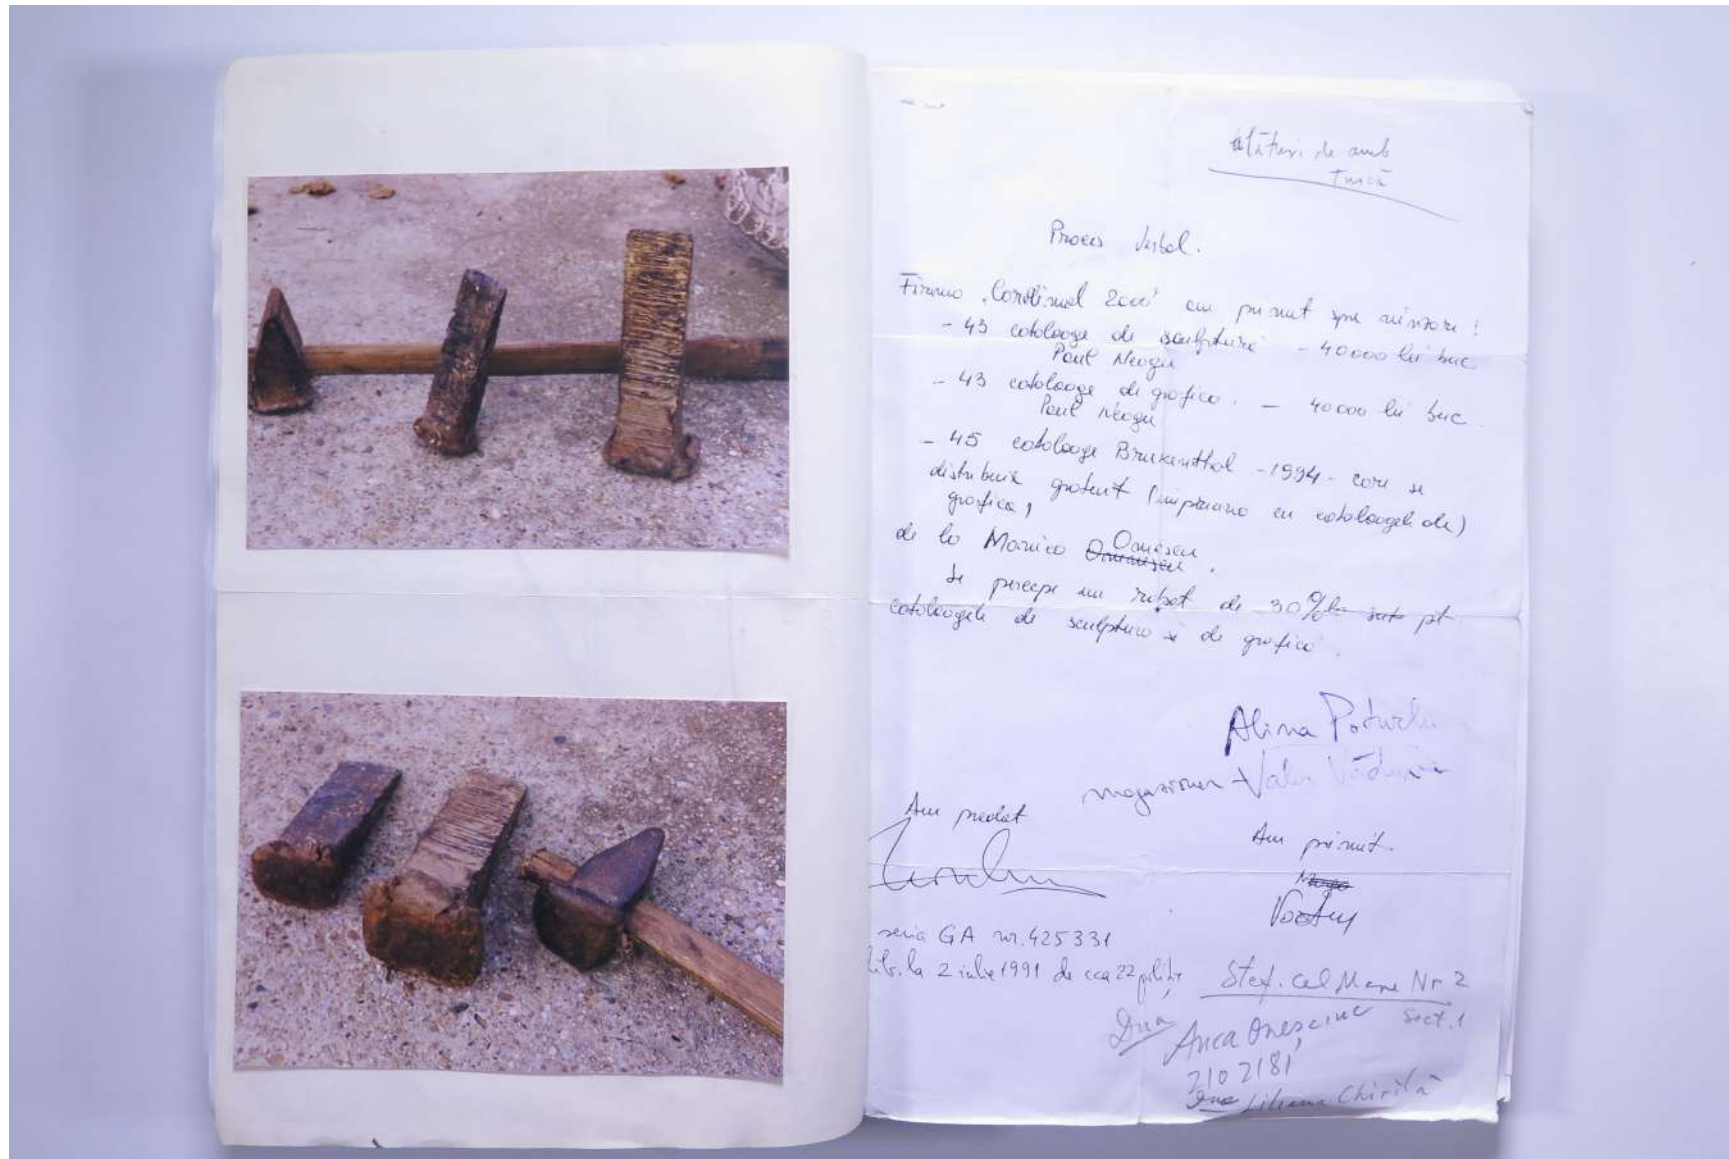 alături de amb
Turcă
Proces Verbal.
Firma "Cardinal 2000" am primit spre vînzare!
- 43 cataloage de sculptură - 40000 lei buc
Paul Neagu
- 43 cataloage de grafica. - 40000 lei buc.
Paul Neagu
- 45 cataloage Brukenthal - 1994 - care se
distribuie gratuit (împreuna cu cataloagele de)
grafica,
de la Marica
Se percepe un rabat de 30% pt
cataloagele de sculptura si de grafica.
Alina
magazioner -
Am predat
Am primit.
seria GA nr. 425331
la 2 iulie 1991 de cca 22 poliție
Ştef. cel Mare Nr 2
Sect. 1
Dna
Anca
210 2181
Dna Liliana Chirilă